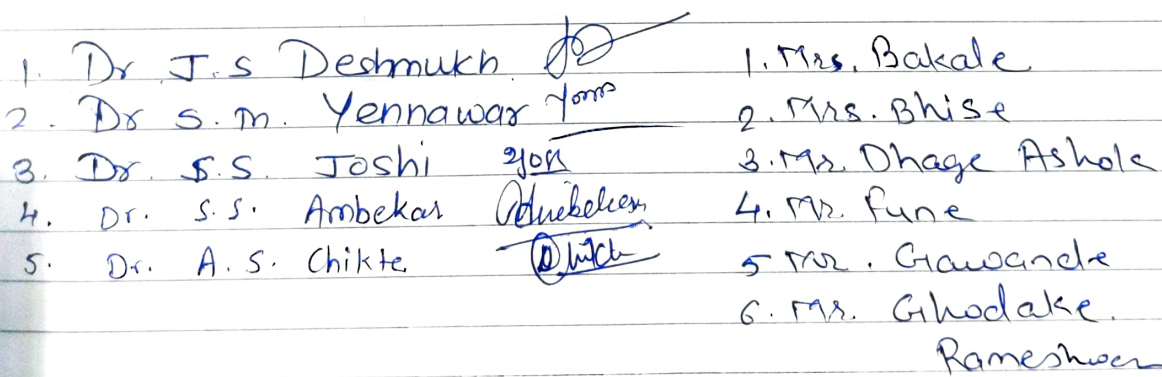 1. Dr J.S Deshmukh
2. Dr S.M. Yennawar
3. Dr. S.S. Joshi
4. Dr. S.S. Ambekar
5. Dr. A.S. Chikte
1. Mrs. Bakale
2. Mrs. Bhise
3. Mr. Dhage Ashok
4. Mr. Fune
5 Mr. Gawande
6. Mr. Ghodake.
Rameshwar